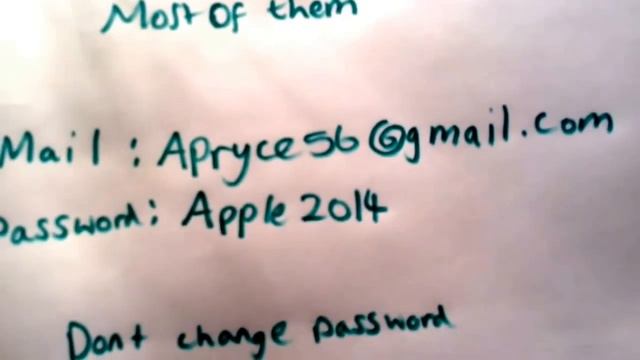 Most Of them
Mail : Apryce56@gmail.com
Password: Apple 2014
Dont change password